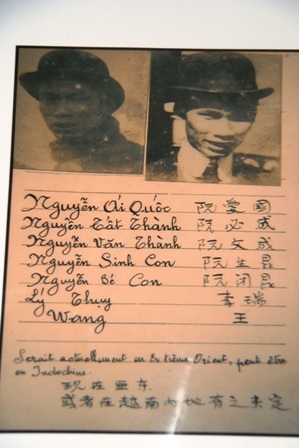 Nguyễn Ái Quốc 阮愛國
Nguyễn Tất Thành 阮必成
Nguyễn Văn Thành 阮文成
Nguyễn Sinh Con 阮生昆
Nguyễn Bé Con 阮闭昆
Lý Thụy 李瑞
Wang 王
Serait actuellement en Extrême Orient, peut être
en Indochine.
现在亚东
或者在越南内地有之未定